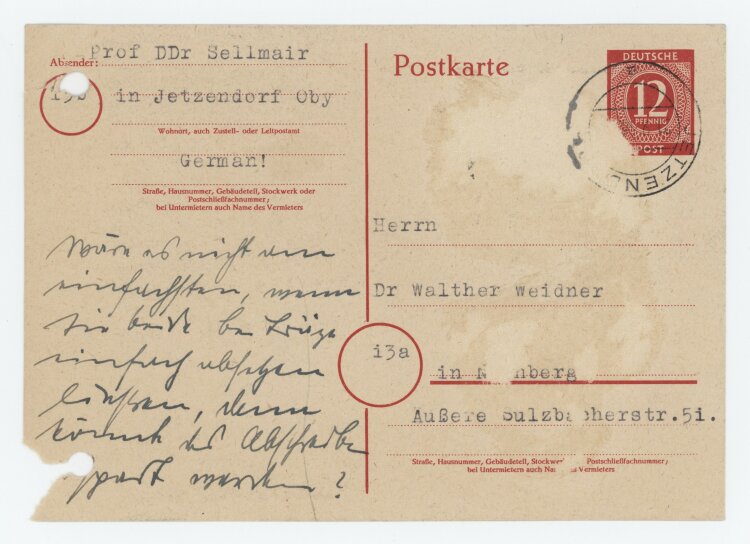 Prof DDr Sellmair
Absender:
13b in Jetzendorf Oby
Wohnort, auch Zustell- oder Leitpostamt
German!
Straße, Hausnummer, Gebäudeteil, Stockwerk oder
Postschließfachnummer;
bei Untermietern auch Name des Vermieters
Wäre es nicht am
einfachsten, wenn
Sie beide
einfach absetzen
ließen, dann
könnte das Abschreiben
spart werden?
Postkarte
DEUTSCHE
12
PFENNIG
POST
TZEN
Herrn
Dr Walther Weidner
i3a
in N nberg
Außere Sulzb cherstr.5i.
Straße, Hausnummer, Gebäudeteil, Stockwer Postschließfachnummer;
bei Untermietern auch Na s Vermieters